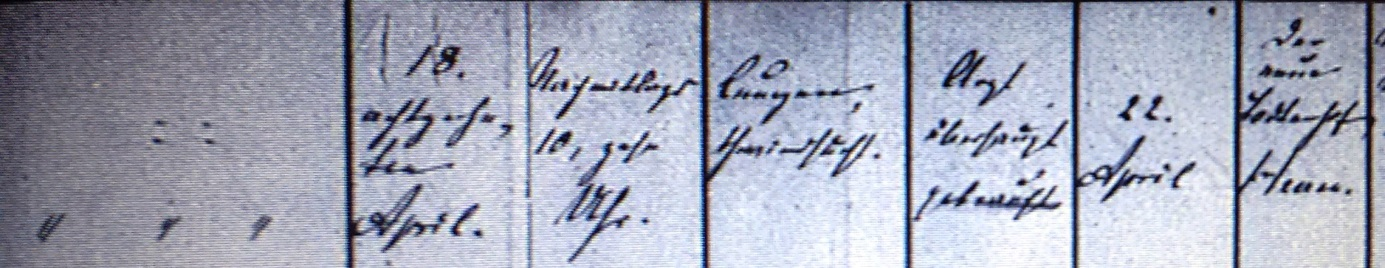 18.
achtzehn,
ten
April.
Nachmittags
10, zehn
Uhr.
Lungen,
schwindsucht.
Arzt
überhaupt
gebraucht
22.
April
Der
neue
Todtenhof
" " "